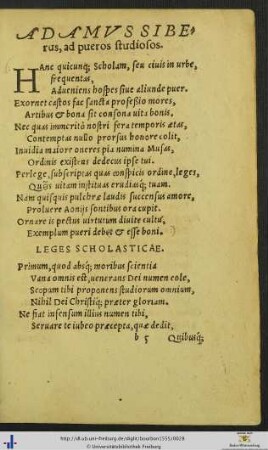 ADAMVS SIBE-
rus, ad pueros studiosos.
HAnc quicunq; Scholam, seu ciuis in urbe,
frequentas,
Adueniens hospes siue aliunde puer.
Exornet castos fac sancta professio mores,
Artibus & bona sit consona uita bonis.
Nec quas immeritò nostri fera temporis ætas,
Contemptas nullo prorsus honore colit,
Inuidia maiorr oneres pia numina Musas,
Ordinis existens dedecus ipse tui.
Perlege, subscriptas quas conspicis ordine, leges,
Queis uitam instituas eruditasq; tuam.
Nam quisquis pulchræ laudis succensus amore,
Proluere Aonijs fontibus ora cupit.
Ornare is pectus uirtutum diuite cultu,
Exemplum pueri debet & esse boni.
LEGES SCHOLASTICAE.
Primum, quod absq; moribus scientia
Vana omnis est, uenerans Dei numen cole,
Scopum tibi proponens studiorum omnium,
Nihil Dei Christiq; præter gloriam.
Ne fiat infensum illius numen tibi,
Seruare te iubeo præcepta, quæ dedit,
b 5 Quibusq;
http://dl.ub.uni-freiburg.de/diglit/
Universitätsbibliothek Freiburg
Baden-Württemberg